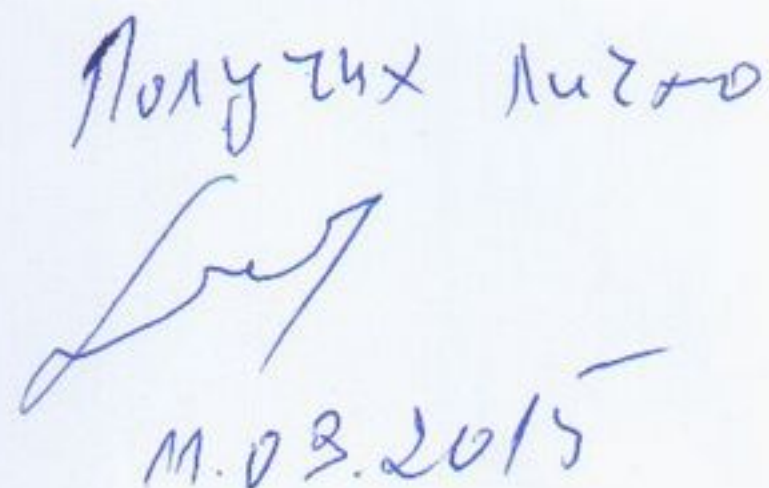 Получих лично
11.03.2015